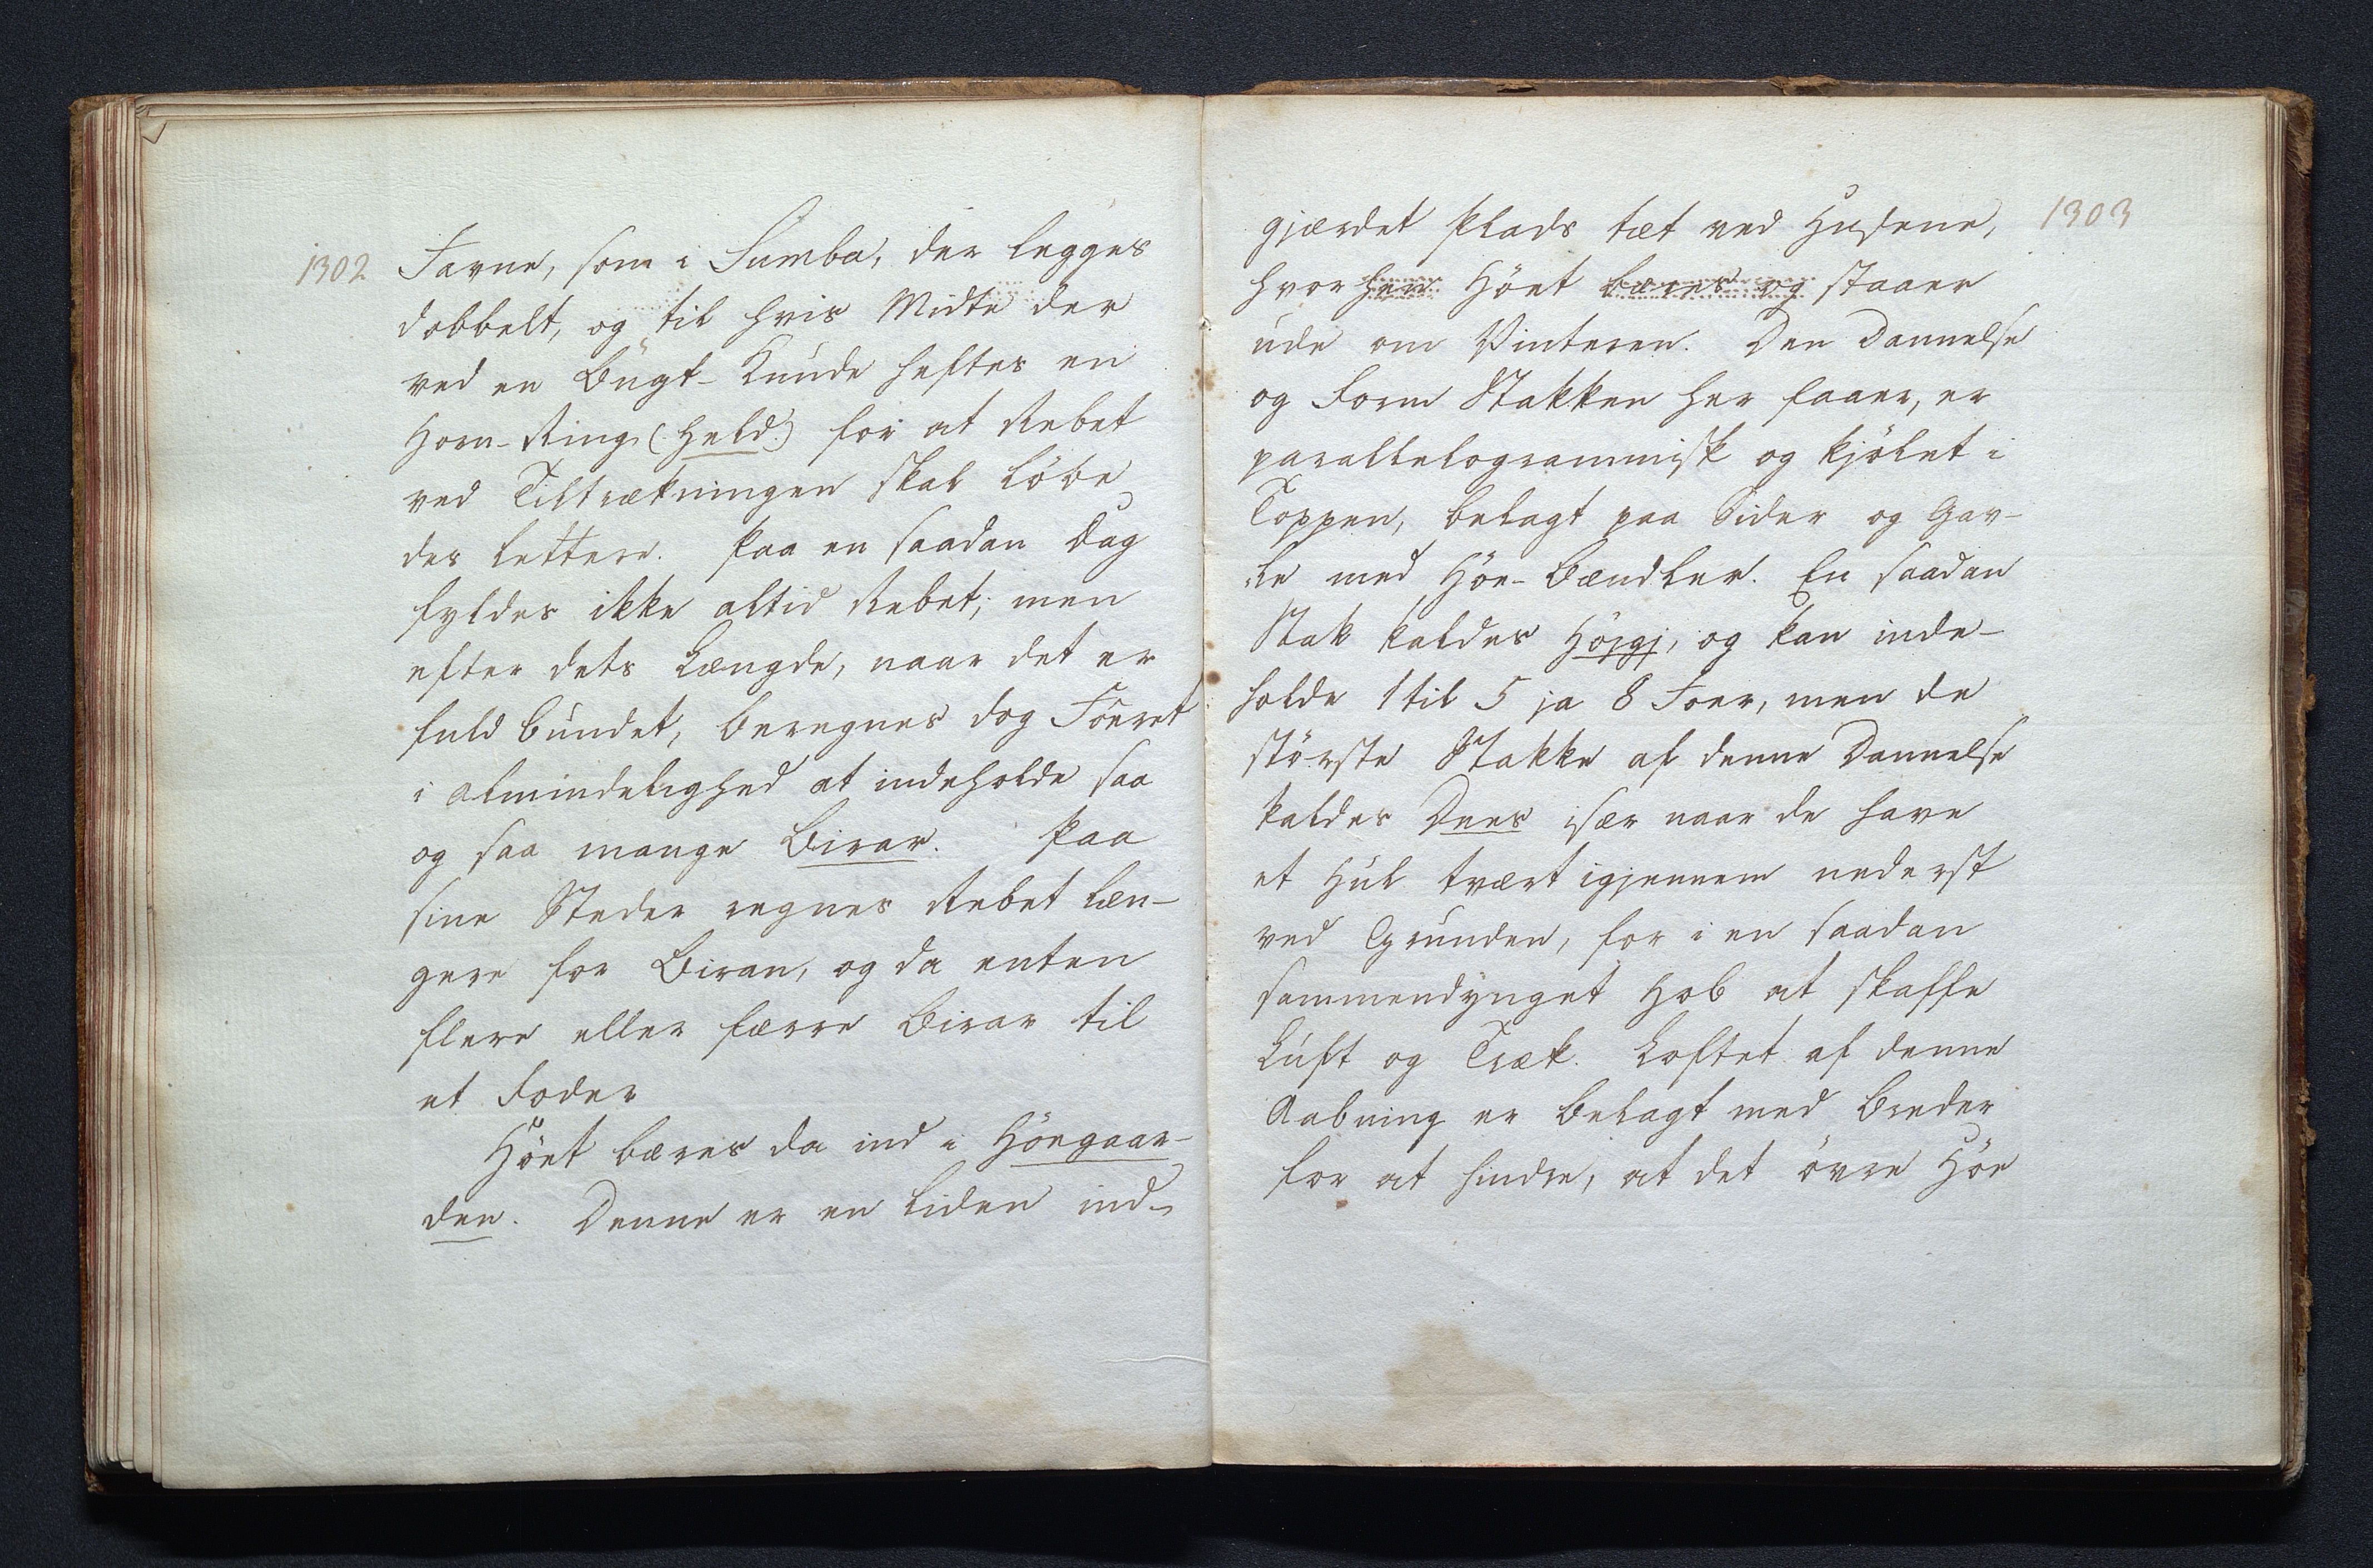 1302
Favne, som i Sumbø, der legges
dobbelt, og til hvis Midte der
ved en Bugt-Knude heftes en
Horn-Ring (Held:) for at Rebet
ved Tiltrækningen skal löbe
des lettere. Paa en saadan Dag
fyldes ikke altid Rebet; men
efter dets Længde, naar det er
fuld bundet, beregnes dog Föeret
i almindelighed at indeholde saa
og saa mange Birar. Paa
sine Steder regnes Rebet læn-
gere for Biran, og da enten
flere eller færre Birar til
et Foder
Höet bæres da ind i Höegaar-
den. Denne er en liden ind-
1303
gjærdet Plads tæt ved Husene,
hvor hen Höet bæres og staaer
ude om Vinteren. Den Dannelse
og Form Stakken her faaer, er
parallelogrammisk og kjölet i
Toppen, belagt paa Sider og Gav-
le med Höe-Bændler. En saadan
Stak kaldes Höjgj, og kan inde-
holde 1 til 5 ja 8 Foer, men de
störste Stakke af denne Dannelse
kaldes Dees især naar de have
et Hul tvært igjennem nederst
ved Grunden, for i en saadan
sammendynget Hob at skaffe
Luft og Træk. Loftet af denne
Aabning er belagt med Breder
for at hindre, at det övre Höe